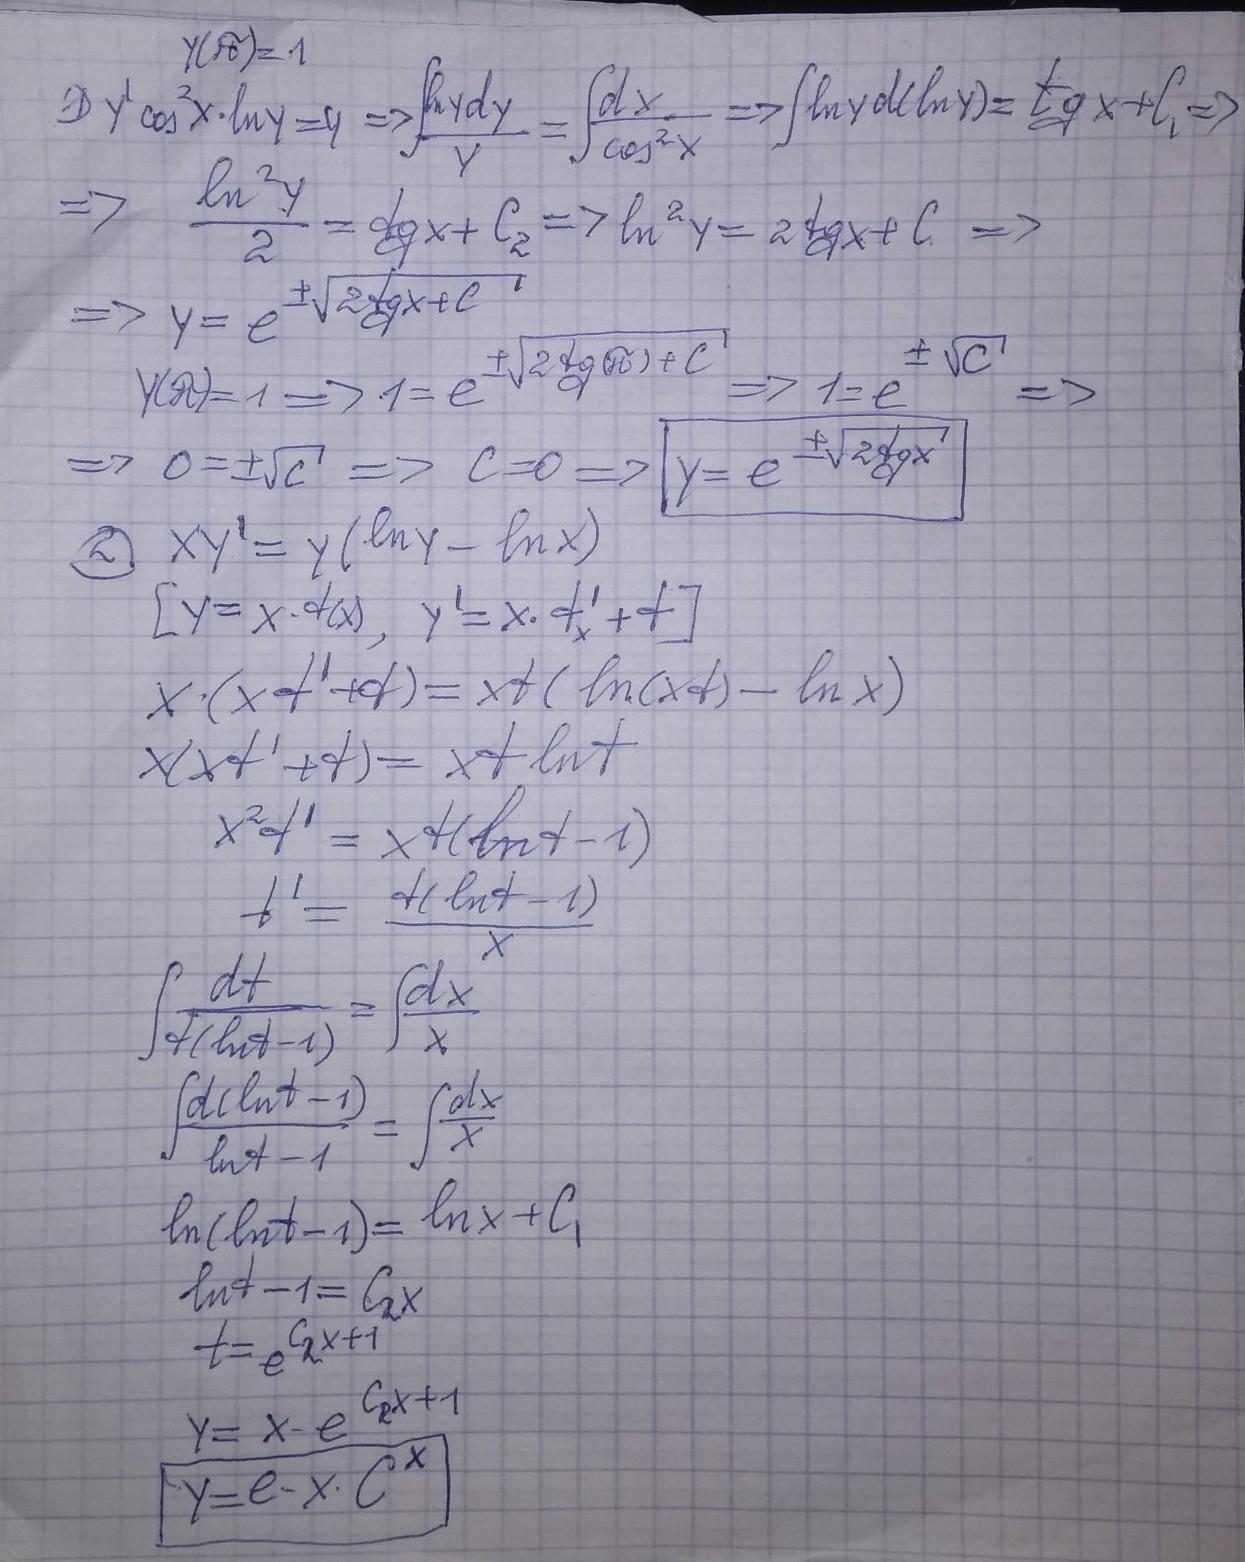 y(π)=1
1) y' cos²x · ln y = y => ∫ ln y dy / y = ∫ dx / cos²x => ∫ ln y d(ln y) = tg x + C₁ =>
=> ln²y / 2 = tg x + C₂ => ln²y = 2 tg x + C =>
=> y = e^(±√(2 tg x + C))
y(π)=1 => 1 = e^(±√(2 tg(π) + C)) => 1 = e^(±√C) =>
=> 0 = ±√C => C=0 => y = e^(±√(2 tg x))
2) xy' = y(ln y − ln x)
[y = x·t(x), y' = x·t'ₓ + t]
x·(xt' + t) = xt(ln(xt) − ln x)
x(xt' + t) = xt ln t
x²t' = xt(ln t − 1)
t' = t(ln t − 1) / x
∫ dt / t(ln t − 1) = ∫ dx / x
∫ d(ln t − 1) / ln t − 1 = ∫ dx / x
ln(ln t − 1) = ln x + C₁
ln t − 1 = C₂x
t = e^(C₂x+1)
y = x · e^(C₂x+1)
y = e · x · C^x